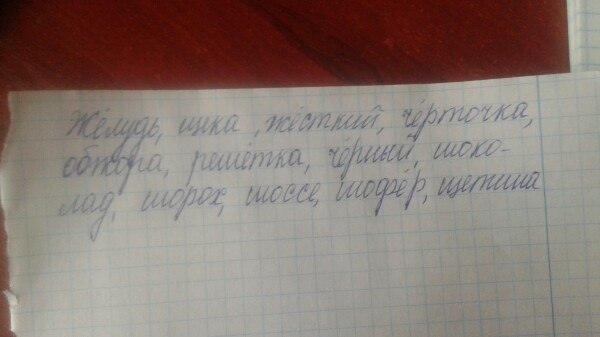 Жёлудь, щека, жёсткий, чёрточка,
обжора, решётка, чёрный, шоко-
лад, шорох, шоссе, шофёр, щетина